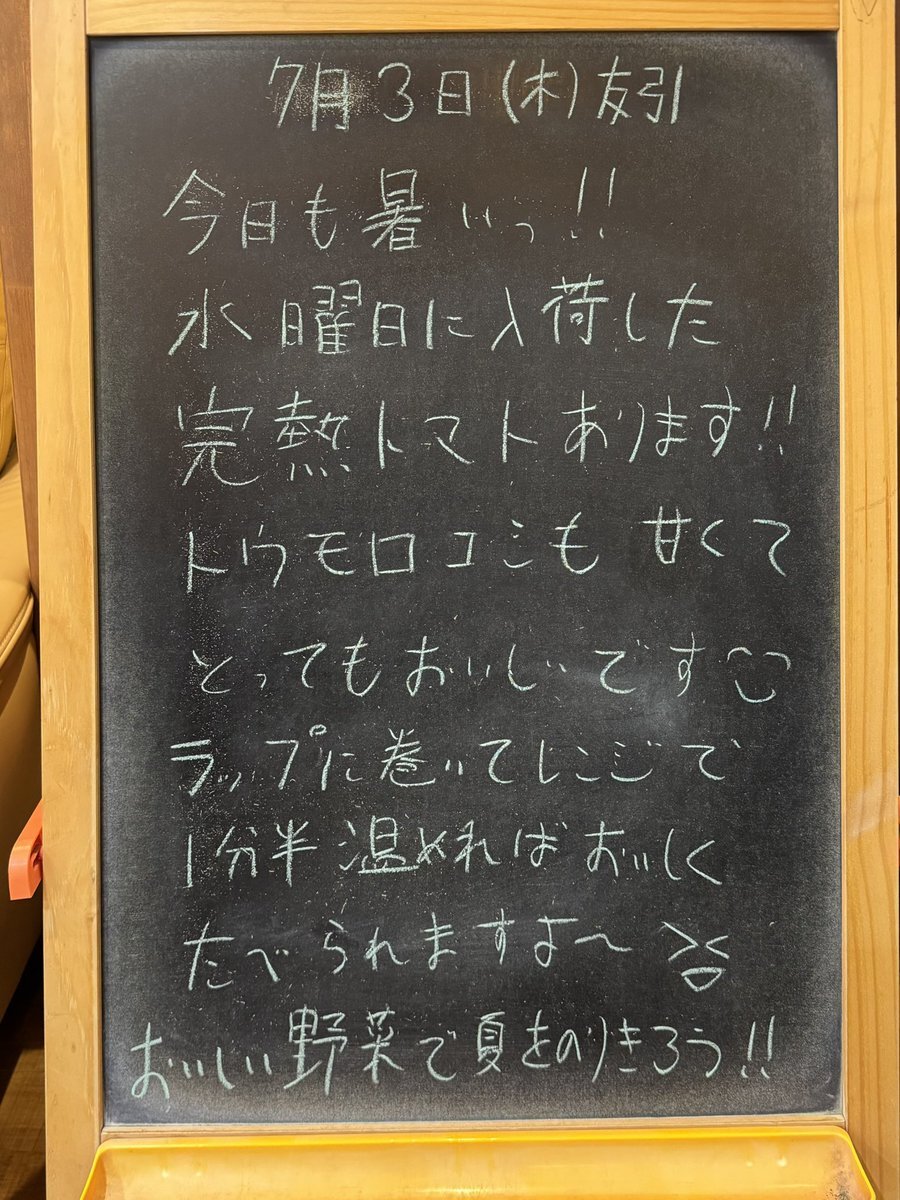 7月3日(木)友引
今日も暑いっ!!
水曜日に入荷した
完熟トマトあります!!
トウモロコシも 甘くて
とってもおいしいです
ラップに巻いてレンジで
1分半温めればおいしく
たべられますよ〜 ><
おいしい野菜で夏をのりきろう!!